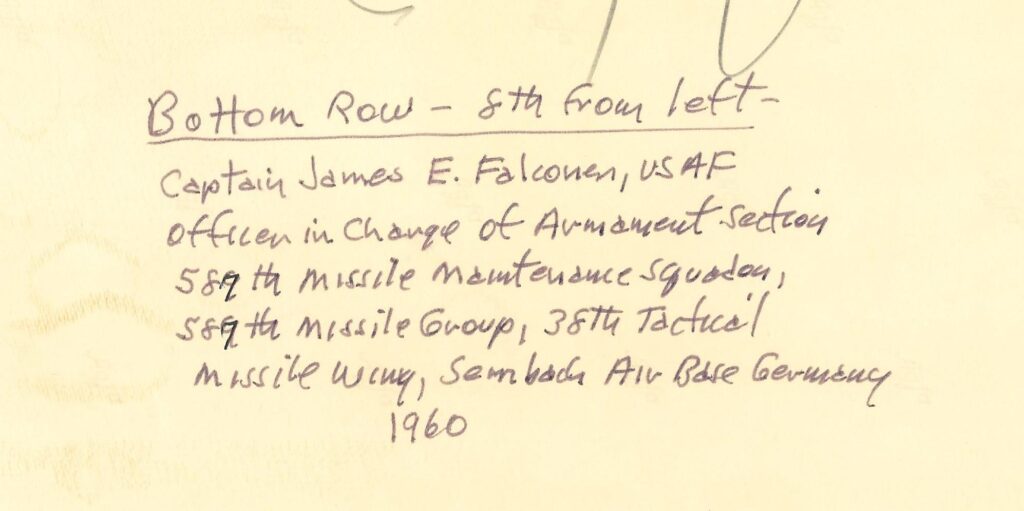 Bottom Row - 8th from left -
Captain James E. Falconer, USAF
Officer in Charge of Armament Section
589th Missile Maintenance Squadon,
589th Missile Group, 38th Tactical
Missile Wing, Sembach Air Base Germany
1960